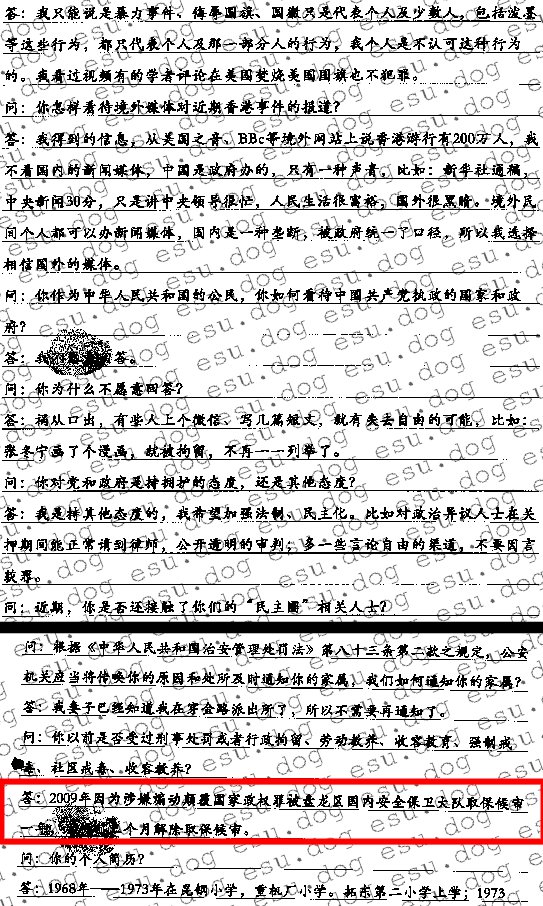 答：我只能说是暴力事件、侮辱国旗、国徽只是代表个人及少数人，包括泼墨
等这些行为，都只代表个人及那一部分人的行为，我个人是不认可这种行为
的。我看过视频有的学者评论在美国焚烧美国国旗也不犯罪。
问：你怎样看待境外媒体对近期香港事件的报道？
答：我得到的信息，从美国之音、BBc等境外网站上说香港游行有200万人，我
不看国内的新闻媒体，中国是政府办的，只有一种声音，比如：新华社通稿，
中央新闻30分，只是讲中央领导很忙，人民生活很富裕，国外很黑暗。境外民
间个人都可以办新闻媒体，国内是一种垄断，被政府统一了口径，所以我选择
相信国外的媒体。
问：你作为中华人民共和国的公民，你如何看待中国共产党执政的国家和政
府？
答：我 答。
问：你为什么不愿意回答？
答：祸从口出，有些人上个微信、写几篇短文，就有失去自由的可能，比如：
张冬宁画了个漫画，就被拘留，不再一一列举了。
问：你对党和政府是持拥护的态度，还是其他态度？
答：我是持其他态度的，我希望加强法制、民主化。比如对政治异议人士在关
押期间能正常请到律师，公开透明的审判；多一些言论自由的渠道，不要因言
获罪。
问：近期，你是否还接触了你们的“民主圈”相关人士？
问：根据《中华人民共和国治安管理处罚法》第八十三条第二款之规定，公安
机关应当将传唤你的原因和处所及时通知你的家属，我们如何通知你的家属？
答：我妻子已经知道我在穿金路派出所了，所以不需要再通知了。
问：你以前是否受过刑事处罚或者行政拘留、劳动教养、收容教育、强制戒
毒、社区戒毒、收容教养？
答：2009年因为涉嫌煽动颠覆国家政权罪被盘龙区国内安全保卫大队取保候审
一 个月解除取保候审。
问：你的个人简历？
答：1968年——1973年在昆钢小学，重机厂小学。拓东第二小学上学；1973
esu.dog